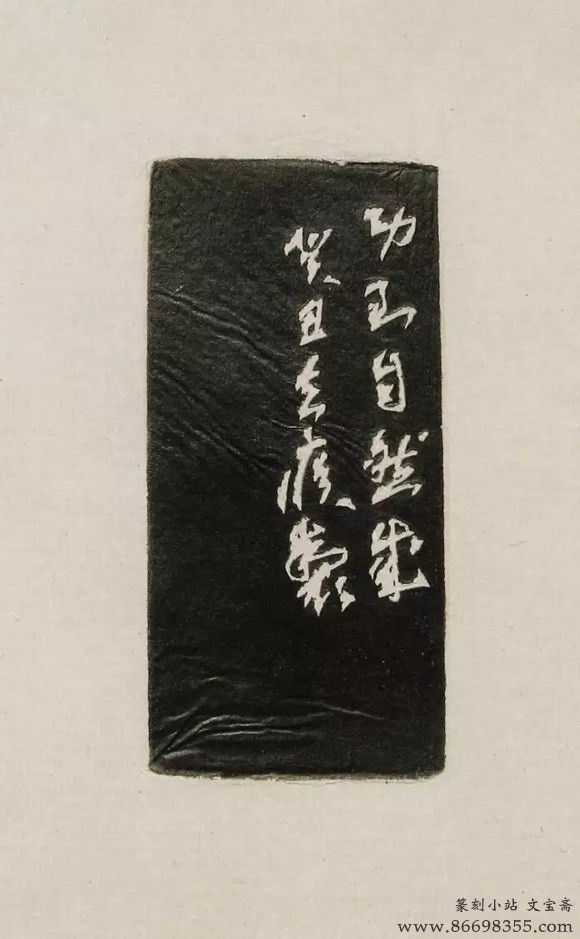 功到自然成
癸丑去疾鑿
篆刻小站 文宝斋
www.86698355.com